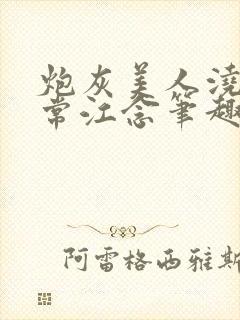 炮灰美人浇
常江念笔趣
阿雷格西雅斯